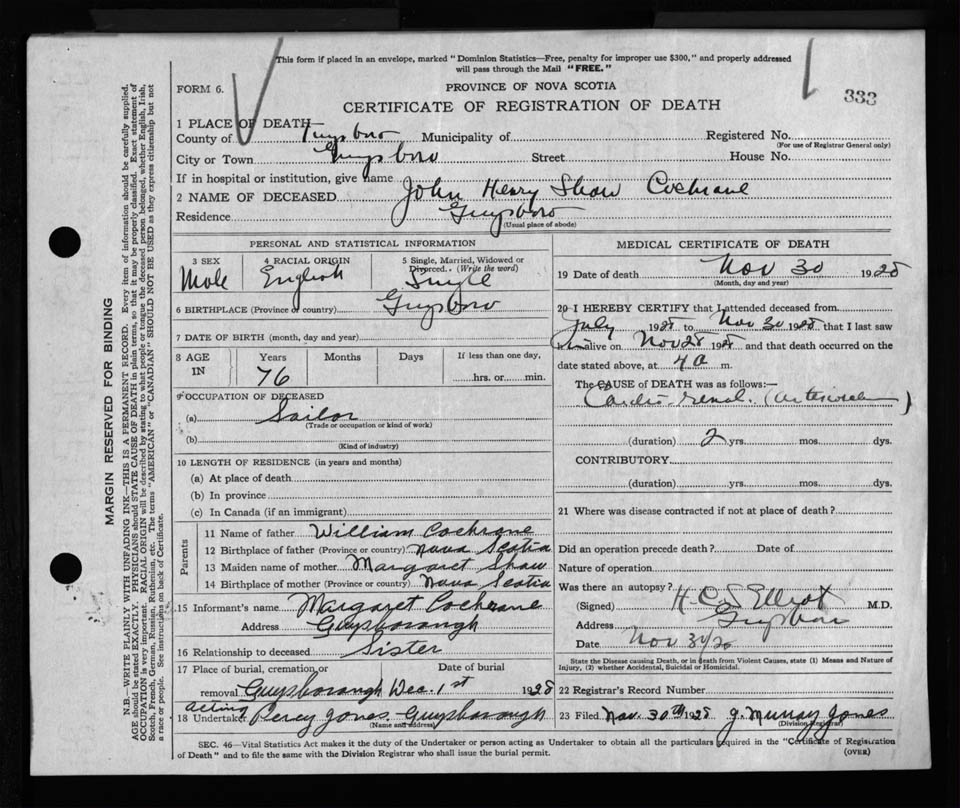 This form if placed in an envelope, marked "Dominion Statistics—Free, penalty for improper use $300," and properly addressed
will pass through the Mail "FREE."
FORM 6.
PROVINCE OF NOVA SCOTIA
333
CERTIFICATE OF REGISTRATION OF DEATH
1 PLACE OF DEATH—
County of Guysboro Municipality of Registered No.
(For use of Registrar General only)
City or Town Guysboro Street House No.
If in hospital or institution, give name
2 NAME OF DECEASED John Henry Shaw Cochrane
Residence Guysboro
(Usual place of abode)
PERSONAL AND STATISTICAL INFORMATION
3 SEX 4 RACIAL ORIGIN 5 Single, Married, Widowed or
Divorced. (Write the word)
Male English Single
6 BIRTHPLACE (Province or country) Guysboro
7 DATE OF BIRTH (month, day and year)
8 AGE IN Years Months Days If less than one day,
76 hrs. or min.
9 OCCUPATION OF DECEASED
(a) Sailor
(Trade or occupation or kind of work)
(b)
(Kind of industry)
10 LENGTH OF RESIDENCE (in years and months)
(a) At place of death
(b) In province
(c) In Canada (if an immigrant)
Parents
11 Name of father William Cochrane
12 Birthplace of father (Province or country) Nova Scotia
13 Maiden name of mother Margaret Shaw
14 Birthplace of mother (Province or country) Nova Scotia
15 Informant's name Margaret Cochrane
Address Guysborough
16 Relationship to deceased Sister
17 Place of burial, cremation, or Date of burial
removal Guysborough Dec. 1st 1928
acting
18 Undertaker Percy Jones Guysborough
(Name and address)
MEDICAL CERTIFICATE OF DEATH
19 Date of death Nov 30 1928
(Month, day and year)
20 I HEREBY CERTIFY that I attended deceased from
July 1928 to Nov 30 1928 that I last saw
him alive on Nov 28 1928 and that death occurred on the
date stated above, at 4 a m.
The CAUSE of DEATH was as follows:—
Cardio-renal.
(duration) 2 yrs. mos. dys.
CONTRIBUTORY
(duration) yrs. mos. dys.
21 Where was disease contracted if not at place of death?
Did an operation precede death? Date of
Nature of operation
Was there an autopsy?
(Signed) Elliot M.D.
Address Guysboro
Date Nov 30/28
State the Disease causing Death, or in death from Violent Causes, state (1) Means and Nature of
Injury, (2) whether Accidental, Suicidal or Homicidal.
22 Registrar's Record Number
23 Filed Nov. 30th 1928 J. Murray Jones
(Division Registrar)
SEC. 46—Vital Statistics Act makes it the duty of the Undertaker or person acting as Undertaker to obtain all the particulars required in the "Certificate of Registration
of Death" and to file the same with the Division Registrar who shall issue the burial permit. (OVER)
MARGIN RESERVED FOR BINDING
N.B.—WRITE PLAINLY WITH UNFADING INK—THIS IS A PERMANENT RECORD. Every item of information should be carefully supplied.
AGE should be stated EXACTLY. PHYSICIANS should STATE CAUSE OF DEATH in plain terms, so that it may be properly classified. Exact statement of
OCCUPATION is very important. RACIAL ORIGIN will be described by stating to what people or tongue the deceased person belonged, whether English, Irish,
Scotch, French, German, Russian, Ruthenian, etc. The terms "AMERICAN" or "CANADIAN" SHOULD NOT BE USED as they express citizenship but not
a race or people. See instructions on back of Certificate.